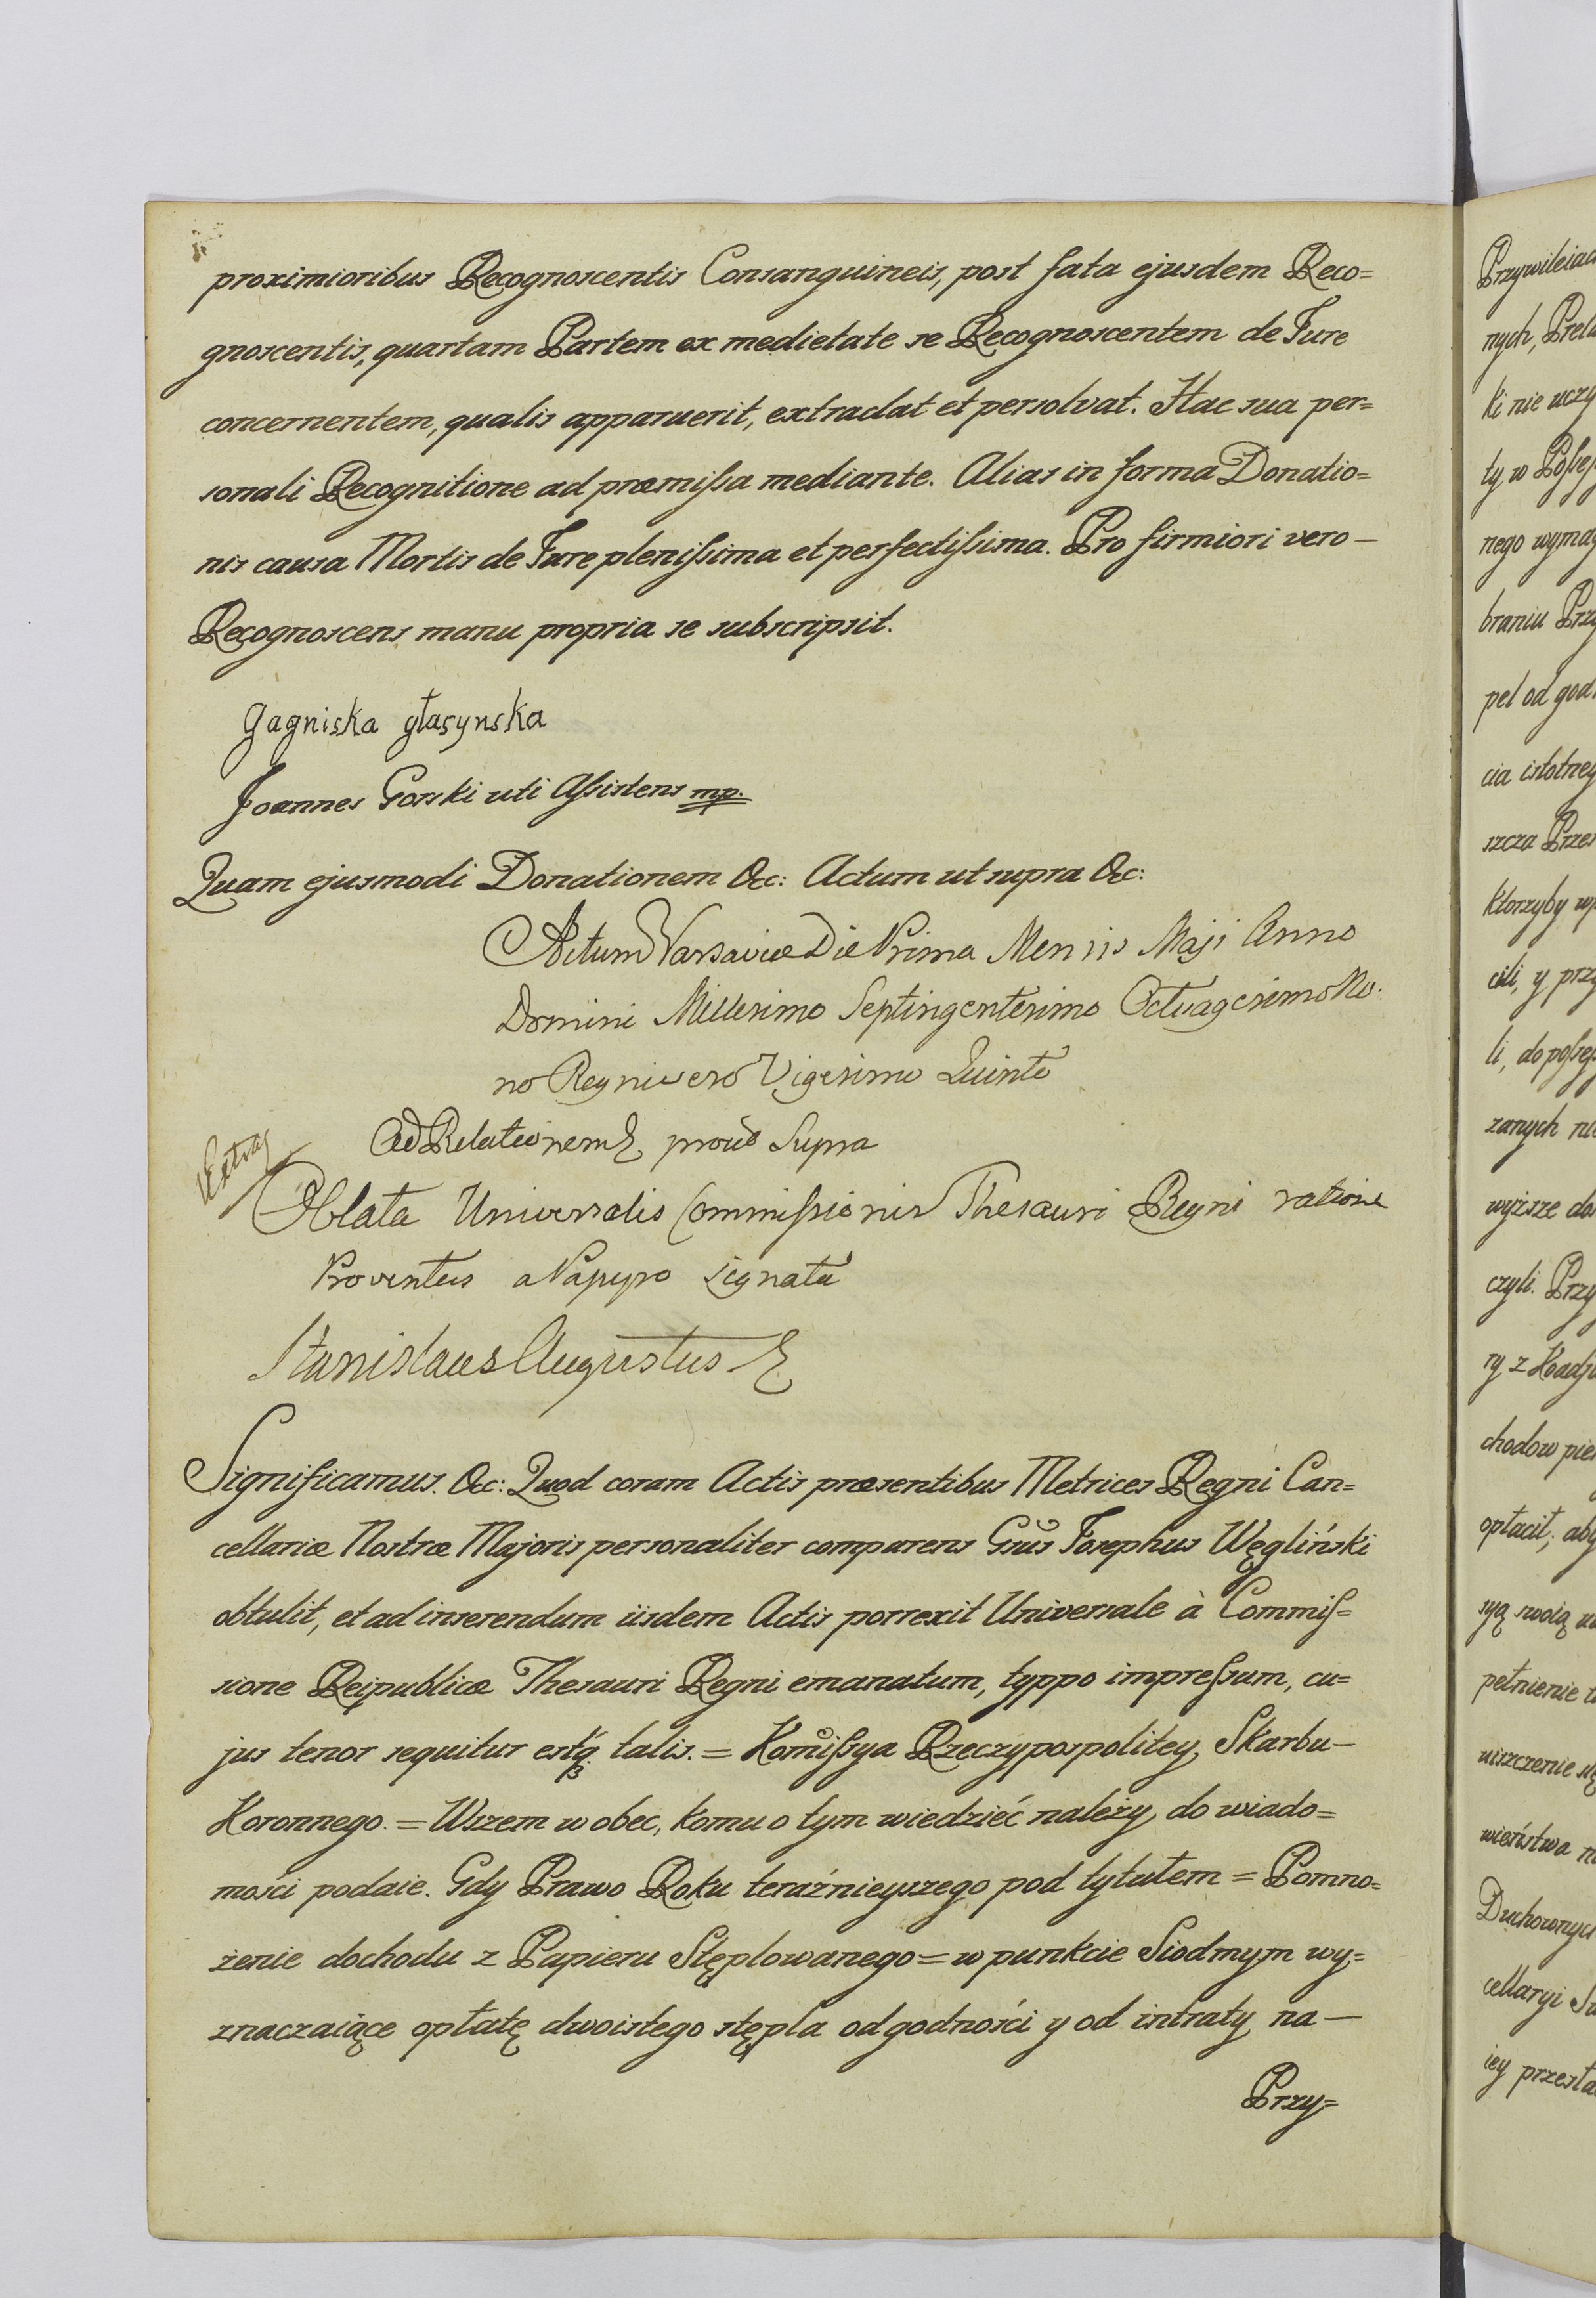 proximioribus Recognoscentis Consanguineis, post fata ejusdem Reco=
gnoscentis, quartam Partem ex medietate se Recognoscentem de Jure
concernentem, qualis apparuerit, extradat et persolvat. Hac sua per=
sonali Recognitione ad præmissa mediante. Alias in forma Donatio=
nis causa Mortis de Jure plenissima et perfectissima. Pro firmiori vero —
Recognoscens manu propria se subscripsit.
Jagniska głasynska
Joannes Gorski uti Assistens mp.
Quam ejusmodi Donationem &c: Actum ut supra &c:
Actum Varsaviæ Die Prima Mensis Maji Anno
Domini Millesimo Septingentesimo Octuagesimo No.
no Regni vero Vigesimo Quinto
Ad Relationem prout Supra
Extrad
Oblata Universalis Commissionis Thesauri Regni ratione
Proventus a Papyro Signata
Stanislaus Augustus
Significamus. &c: Quod coram Actis præsentibus Metrices Regni Can=
cellariæ Nostræ Majoris personaliter comparens Gsus Josephus Węgliński
obtulit, et ad inserendum iisdem Actis porrexit Universale à Commis=
sione Reipublicæ Thesauri Regni emanatum, typpo impressum, cu=
jus tenor sequitur estq. talis. = Komissya Rzeczypospolitey Skarbu —
Koronnego. = Wszem w obec, komu o tym wiedzieć należy, do wiado=
mości podaie. Gdy Prawo Roku teraźnieyszego pod tytułem = Pomno=
żenie dochodu z Papieru Stęplowanego = w punkcie Siodmym wy=
znaczaiące opłatę dwoistego stępla od godności y od intraty na —
Przy=
Przywileiac
nych, Prela
ki nie uczy
ty w Posses
nego wymag
braniu Przy
pel od god
cia istotney
szcza Przes
ktorzyby wy
cili, y przy
li, do posses
zanych nie
wyższe do
czyli. Przy
ry z Koadju
chodow pier
opłacił, aby
syą swoią
pełnienie
uiszczenie się
wieństwa
Duchownych
cellaryi
iey przesła